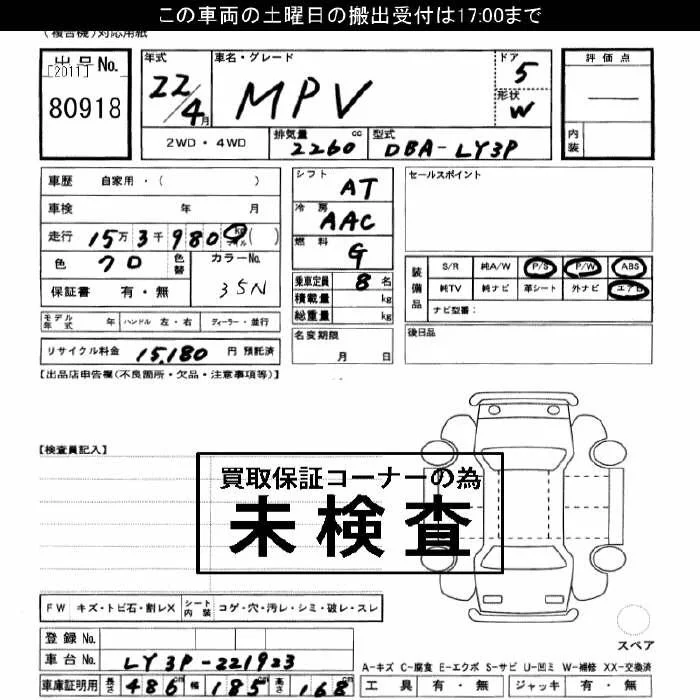 この車両の土曜日の搬出受付は17:00まで
(複合機)対応用紙
出品No.
[2011]
80918
年式 車名・グレード ドア
22/4月 MPV 5
形状
W
2WD・4WD 排気量 2260 cc 型式 DBA-LY3P
評価点
―
内装
車歴 自家用・( )
車検 年 月
走行 15万3千980 km マイル ( )
色 クロ 色替 カラーNo. 35N
保証書 有・無
モデル年式 年 ハンドル 左・右 ディーラー・並行
リサイクル料金 15,180 円 預託済
シフト AT
冷房 AAC
燃料 G
乗車定員 8 名
積載量 kg
総重量 kg
名変期限
月 日
セールスポイント
装備品 S/R 純A/W P/S P/W ABS
純TV 純ナビ 革シート 外ナビ エアB
ナビ型番:
後日品
【出品店申告欄(不良箇所・欠品・注意事項等)】
【検査員記入】
買取保証コーナーの為
未検査
FW キズ・トビ石・割レX シート内装 コゲ・穴・汚レ・シミ・破レ・スレ
登録 No.
車台 No. LY3P-221923
車庫証明用 長さ 486 cm 幅 185 cm 高さ 168 cm
スペア
A-キズ C-腐食 E-エクボ S-サビ U-凹ミ W-補修 XX-交換済
工具 有・無 ジャッキ 有・無